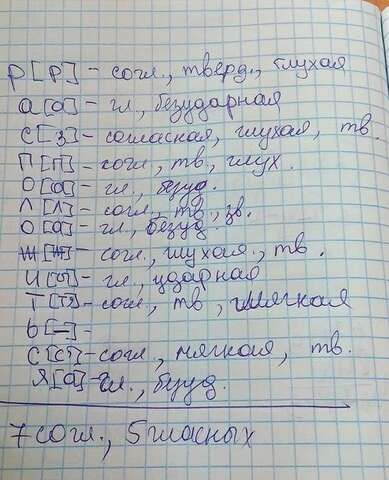 Р [р] – согл., тверд., глухая
а [а] – гл, безударная
с [з] – согласная, глухая, тв.
п [п] – согл, тв, глух.
о [а] – гл., безуд.
л [л] – согл, тв, зв.
о [а] – гл, безуд.
ж [ж] – согл., глухая., тв.
и [ы] – гл., ударная
т [т] – согл., тв, мягкая
ь [–] –
с [с] – согл, мягкая, тв.
я [а] – гл., безуд.
7 согл., 5 гласных